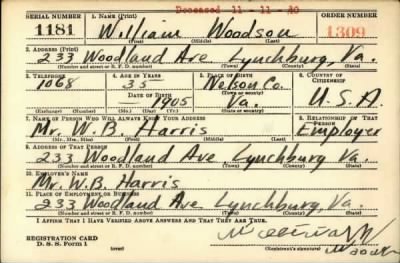 Deceased 11 - 11 - 40
SERIAL NUMBER 1. NAME (Print) ORDER NUMBER
1181 William Woodson 1309
(First) (Middle) (Last)
2. ADDRESS (Print)
233 Woodland Ave Lynchburg, Va.
(Number and street or R. F. D. number) (Town) (County) (State)
3. TELEPHONE 4. AGE IN YEARS 5. PLACE OF BIRTH 6. COUNTRY OF CITIZENSHIP
1068 35 Nelson Co. U.S.A.
DATE OF BIRTH (Town or county)
1905 Va.
(Mo.) (Day) (Yr.) (State or country)
7. NAME OF PERSON WHO WILL ALWAYS KNOW YOUR ADDRESS 8. RELATIONSHIP OF THAT PERSON
Mr. W. B. Harris Employer
(Mr., Mrs., Miss) (First) (Middle) (Last)
9. ADDRESS OF THAT PERSON
233 Woodland Ave Lynchburg Va.
(Number and street or R. F. D. number) (Town) (County) (State)
10. EMPLOYER'S NAME
Mr. W. B. Harris
11. PLACE OF EMPLOYMENT OR BUSINESS
233 Woodland Ave Lynchburg, Va.
(Number and street or R. F. D. number) (Town) (County) (State)
I AFFIRM THAT I HAVE VERIFIED ABOVE ANSWERS AND THAT THEY ARE TRUE.
REGISTRATION CARD
D. S. S. Form 1 (over) (Registrant's signature)